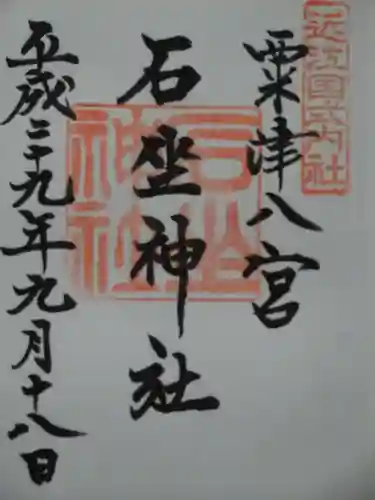 近江国式内社
粟津八宮
石坐神社
石坐神社
平成二十九年九月十八日